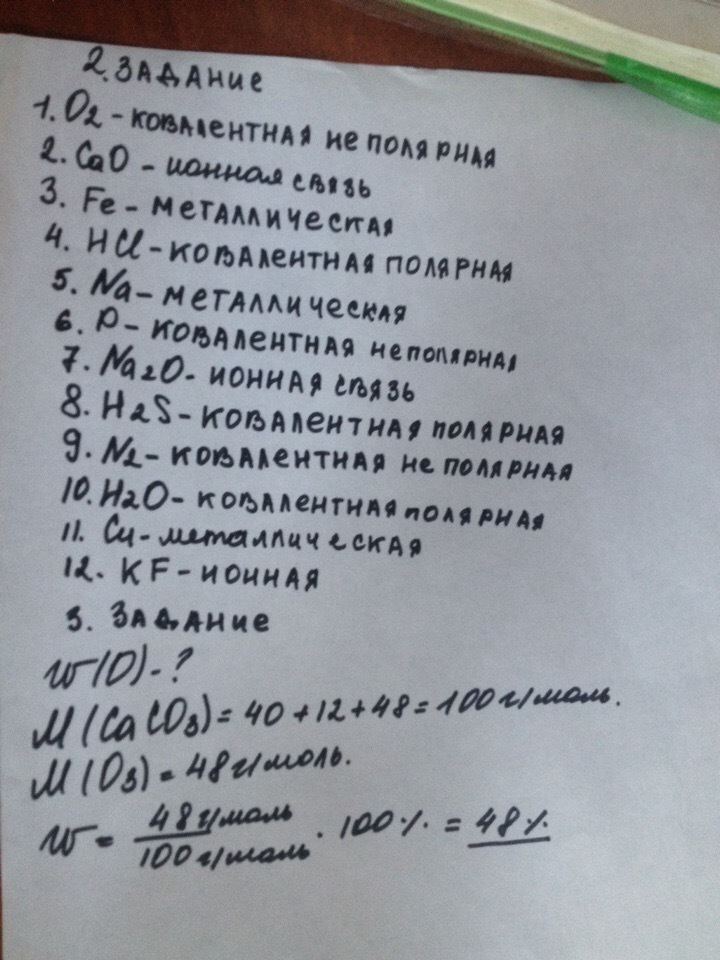 2. ЗАДАНИЕ
1. O2 - КОВАЛЕНТНАЯ НЕ ПОЛЯРНАЯ
2. CaO - ИОННАЯ СВЯЗЬ
3. Fe - МЕТАЛЛИЧЕСКАЯ
4. HCl - КОВАЛЕНТНАЯ ПОЛЯРНАЯ
5. Na - МЕТАЛЛИЧЕСКАЯ
6. P - КОВАЛЕНТНАЯ НЕПОЛЯРНАЯ
7. Na2O - ИОННАЯ СВЯЗЬ
8. H2S - КОВАЛЕНТНАЯ ПОЛЯРНАЯ
9. N2 - КОВАЛЕНТНАЯ НЕ ПОЛЯРНАЯ
10. H2O - КОВАЛЕНТНАЯ ПОЛЯРНАЯ
11. Cu - МЕТАЛЛИЧЕСКАЯ
12. KF - ИОННАЯ
3. ЗАДАНИЕ
w(O) - ?
M(CaCO3) = 40 + 12 + 48 = 100 г/моль.
M(O3) = 48 г/моль.
w = 48 г/моль / 100 г/моль · 100% = 48%